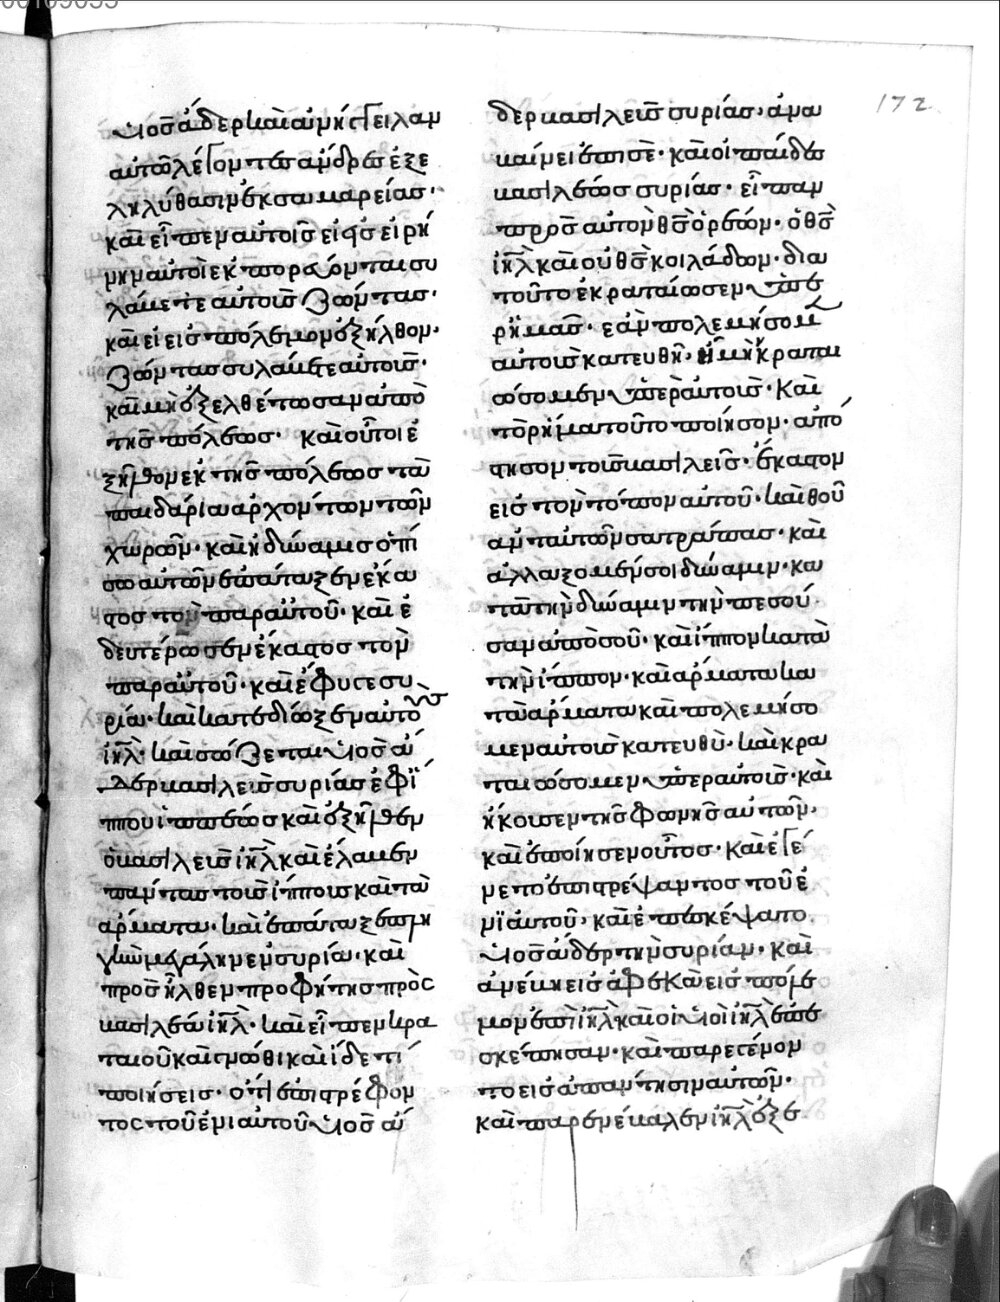 υἱοσ ἄδερ καὶ ἀνήγγειλαν
αὐτῶ λέγοντεσ ἄνδρεσ ἐξε
ληλύθασιν ἐκ σαμαρείασ·
καὶ εἶπεν αὐτοῖσ εἰσ εἰρή
νην αὐτοὶ ἐκπορεύονται συ
λάβετε αὐτοὺσ ζῶντασ·
καὶ εἰ εἰσ πόλεμον ἐξῆλθον·
ζῶντασ συλάβετε αὐτούσ·
καὶ μὴ ἐξελθέτωσαν ἀπὸ
τῆσ πόλεωσ· καὶ οὗτοι ἐ
ξῆλθον ἐκ τῆσ πόλεωσ τὰ
παιδάρια ἀρχόντων τῶν
χωρῶν· καὶ ἡ δύναμισ ὀπί
σω αὐτῶν ἐπάταξεν ἕκα
στοσ τὸν παρ αὐτοῦ· καὶ ἐ
δευτέρωσεν ἕκαστοσ τὸν
παρ αὐτοῦ· καὶ ἔφυγε συ
ρία· καὶ κατεδίωξεν αὐτοὺσ
ιηλ· καὶ σώζεται υἱοσ ἄ
δερ βασιλεὺσ συρίασ ἐφ ἵ
ππου ἱππέωσ καὶ ἐξῆλθεν
ὁ βασιλεὺσ ιηλ καὶ ἔλαβεν
πάντασ τοὺσ ἵππουσ καὶ τὰ
ἅρματα· καὶ ἐπάταξε πλη
γὴν μεγάλην ἐν συρία· καὶ
προσῆλθεν προφήτησ πρὸς
βασιλέα ιηλ· καὶ εἶπεν κρα
ταιοῦ καὶ γνῶθι καὶ ἴδε τί
ποιήσεισ· ὅτι ἐπιστρέφον
τος τοῦ ἐνιαυτοῦ υἱοσ ἄ
δερ βασιλεὺσ συρίασ· ἀνα
βαίνει ἐπὶ σὲ· καὶ οἱ παῖδεσ
βασιλέωσ συρίασ· εἶπαν
πρὸσ αὐτὸν θσ ὀρέων· ὁ θσ
ιηλ καὶ οὐ θσ κοιλάδων· διὰ
τοῦτο ἐκραταίωσεν ὑπὲρ
ἡμᾶσ· ἐὰν πολεμήσομεν
αὐτοὺσ κατευθὺ· εἰ μὴ κραται
ώσομεν ὑπὲρ αὐτούσ· Καὶ
τὸ ρῆμα τοῦτο ποίησον· ἀπό
στησον τοὺσ βασιλεῖσ· ἕκαστον
εἰσ τὸν τόπον αὐτοῦ· καὶ θοῦ
ἀντ αὐτῶν σατράπασ· καὶ
ἀλλάξομέν σοι δύναμιν· κα
τὰ τὴν δύναμιν τὴν πεσοῦ
σαν ἀπὸ σοῦ· καὶ ἵππον κατὰ
τὴν ἵππον· καὶ ἅρματα κα
τὰ ἅρματα καὶ πολεμήσο
μεν αὐτοὺσ κατευθὺ· καὶ κρα
ταιώσομεν ὑπερ αὐτούσ· καὶ
ἤκουσεν τῆσ φωνῆσ αὐτῶν·
καὶ ἐποίησεν οὕτοσ· καὶ ἐγέ
νετο ἐπιστρέψαντοσ τοῦ ἐ
νιαυτοῦ· καὶ ἐπεσκέψατο
υἱοσ ἄδερ τὴν συρίαν· καὶ
ἀνέβη εἰσ ἀφεκὰ εἰσ πόλε
μον ἐπὶ ιηλ καὶ οἱ υἱοὶ ιηλ ἐπε
σκέπησαν· καὶ παρεγένον
το εἰσ ἀπάντησιν αὐτῶν·
καὶ παρενέβαλεν ιηλ ἐξε
172